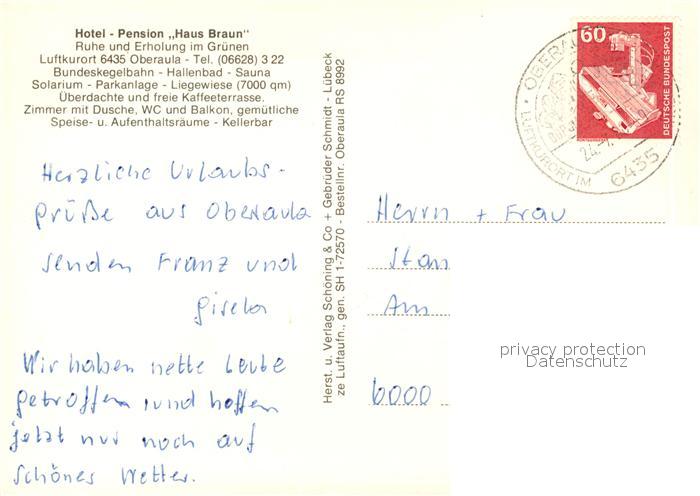 Hotel - Pension „Haus Braun"
Ruhe und Erholung im Grünen
Luftkurort 6435 Oberaula - Tel. (06628) 3 22
Bundeskegelbahn - Hallenbad - Sauna
Solarium - Parkanlage - Liegewiese (7000 qm)
Überdachte und freie Kaffeeterrasse.
Zimmer mit Dusche, WC und Balkon, gemütliche
Speise- u. Aufenthaltsräume - Kellerbar
Herzliche Urlaubs-
grüße aus Oberaula
senden Franz und
Gisela
Wir haben nette Leute
getroffen und hoffen
jetzt nur noch auf
schönes Wetter.
Herst. u. Verlag Schöning & Co + Gebrüder Schmidt - Lübeck
ze Luftaufn., gen. SH 1-72570 - Bestellnr. Oberaula RS 8992
60
DEUTSCHE BUNDESPOST
OBERA
LUFTKURORT IM
6435
24.
Herrn + Frau
Stan
Am
6000
privacy protection
Datenschutz